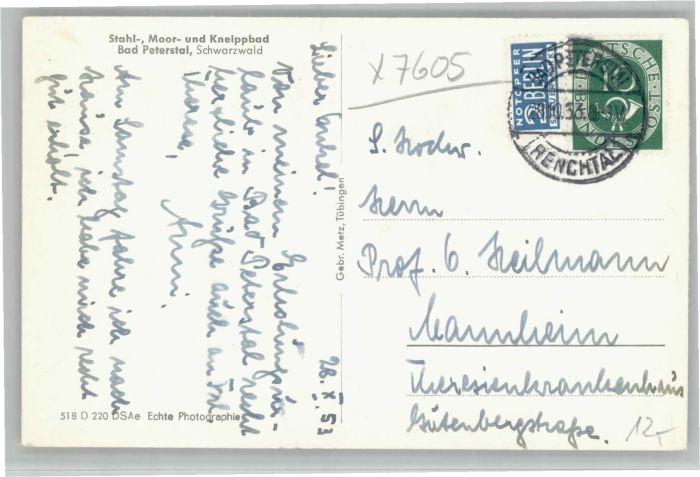 Stahl-, Moor- und Kneippbad
Bad Peterstal, Schwarzwald
28.X.53
Von meinem Erholungsur-
laub in Bad Peterstal recht
herzliche Grüße auch an Frl.
Therese,
Anni.
Am Samstag fahre ich nach
Hause, ich habe mich recht
gut erholt.
518 D 220 DSAe Echte Photographie
Gebr. Metz, Tübingen
X 7605
NOTOPFER
2 BERLIN
STEUERMARKE
10
DEUTSCHE POST
RENCHTAL
Herrn
Prof. G. Heilmann
Mannheim
Theresienkrankenhaus
Gutenbergstraße.
12,-